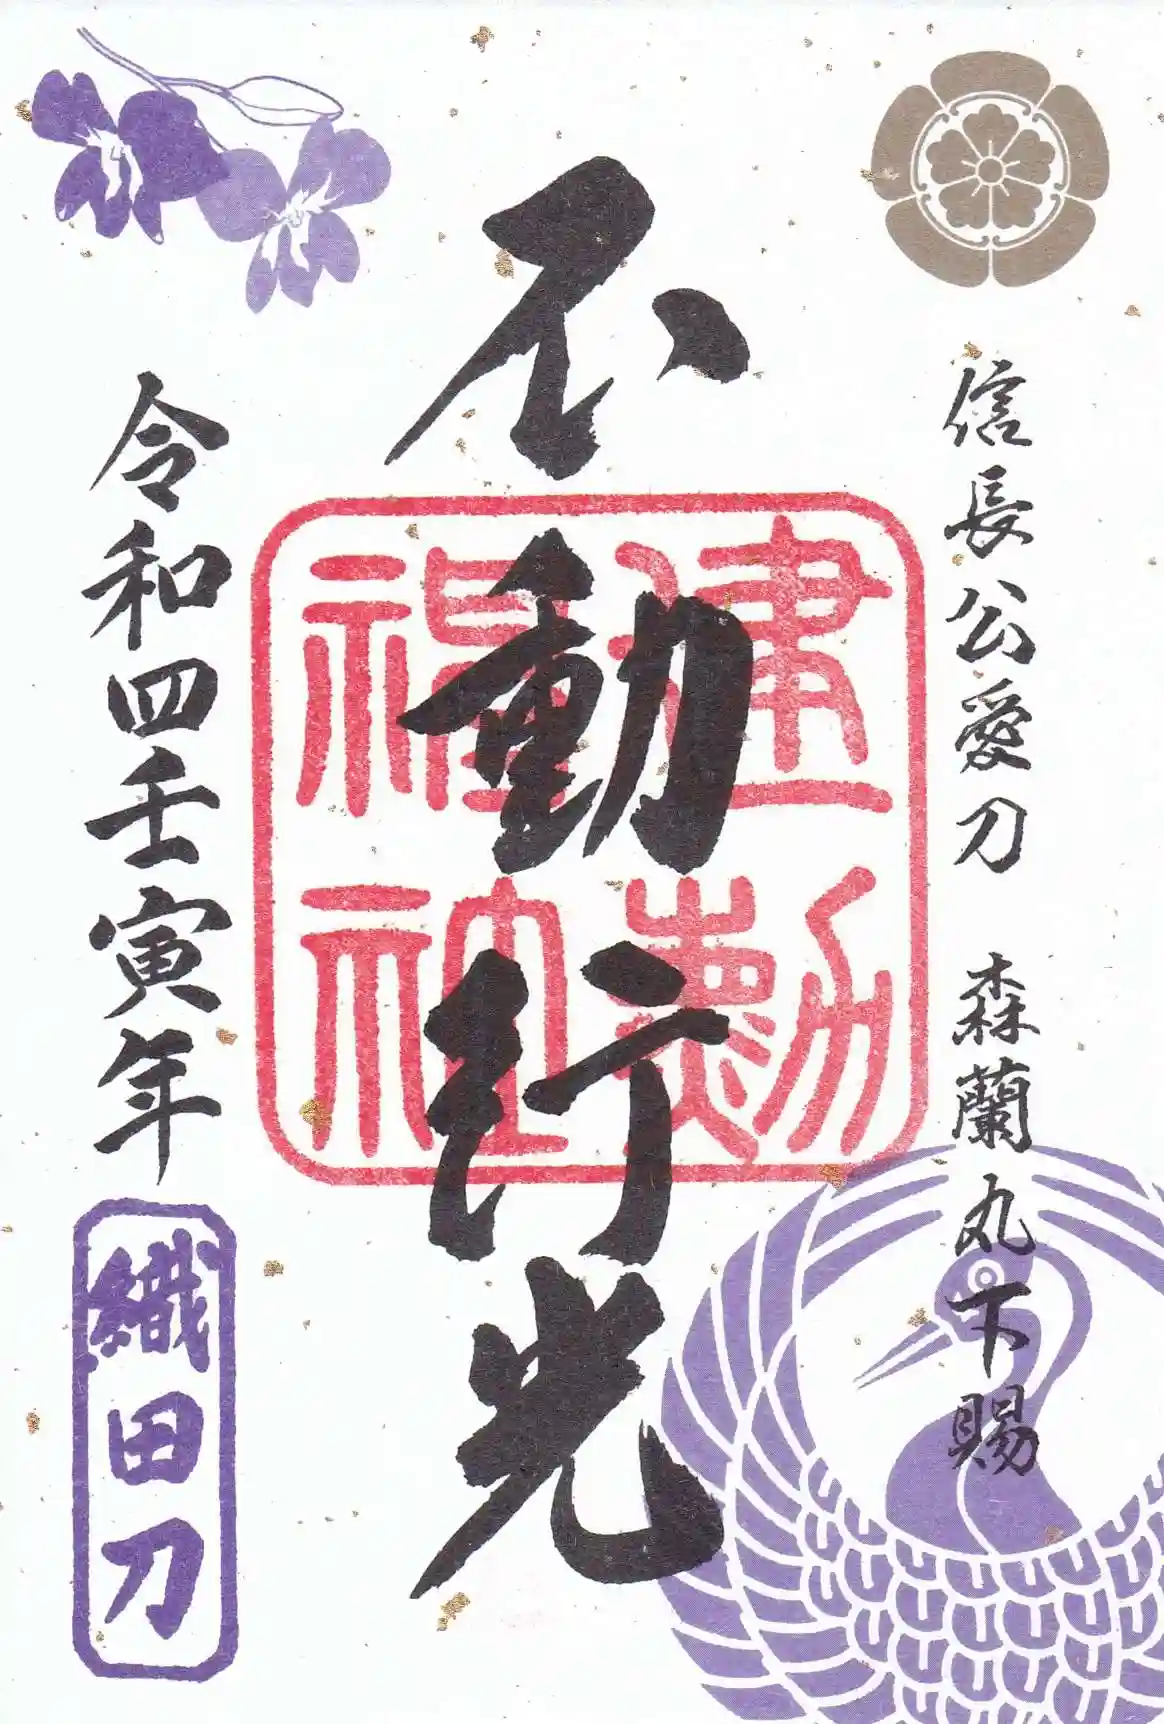 信長公愛刀　森蘭丸下賜
不動行光
建勲
神社
令和四壬寅年
織田刀